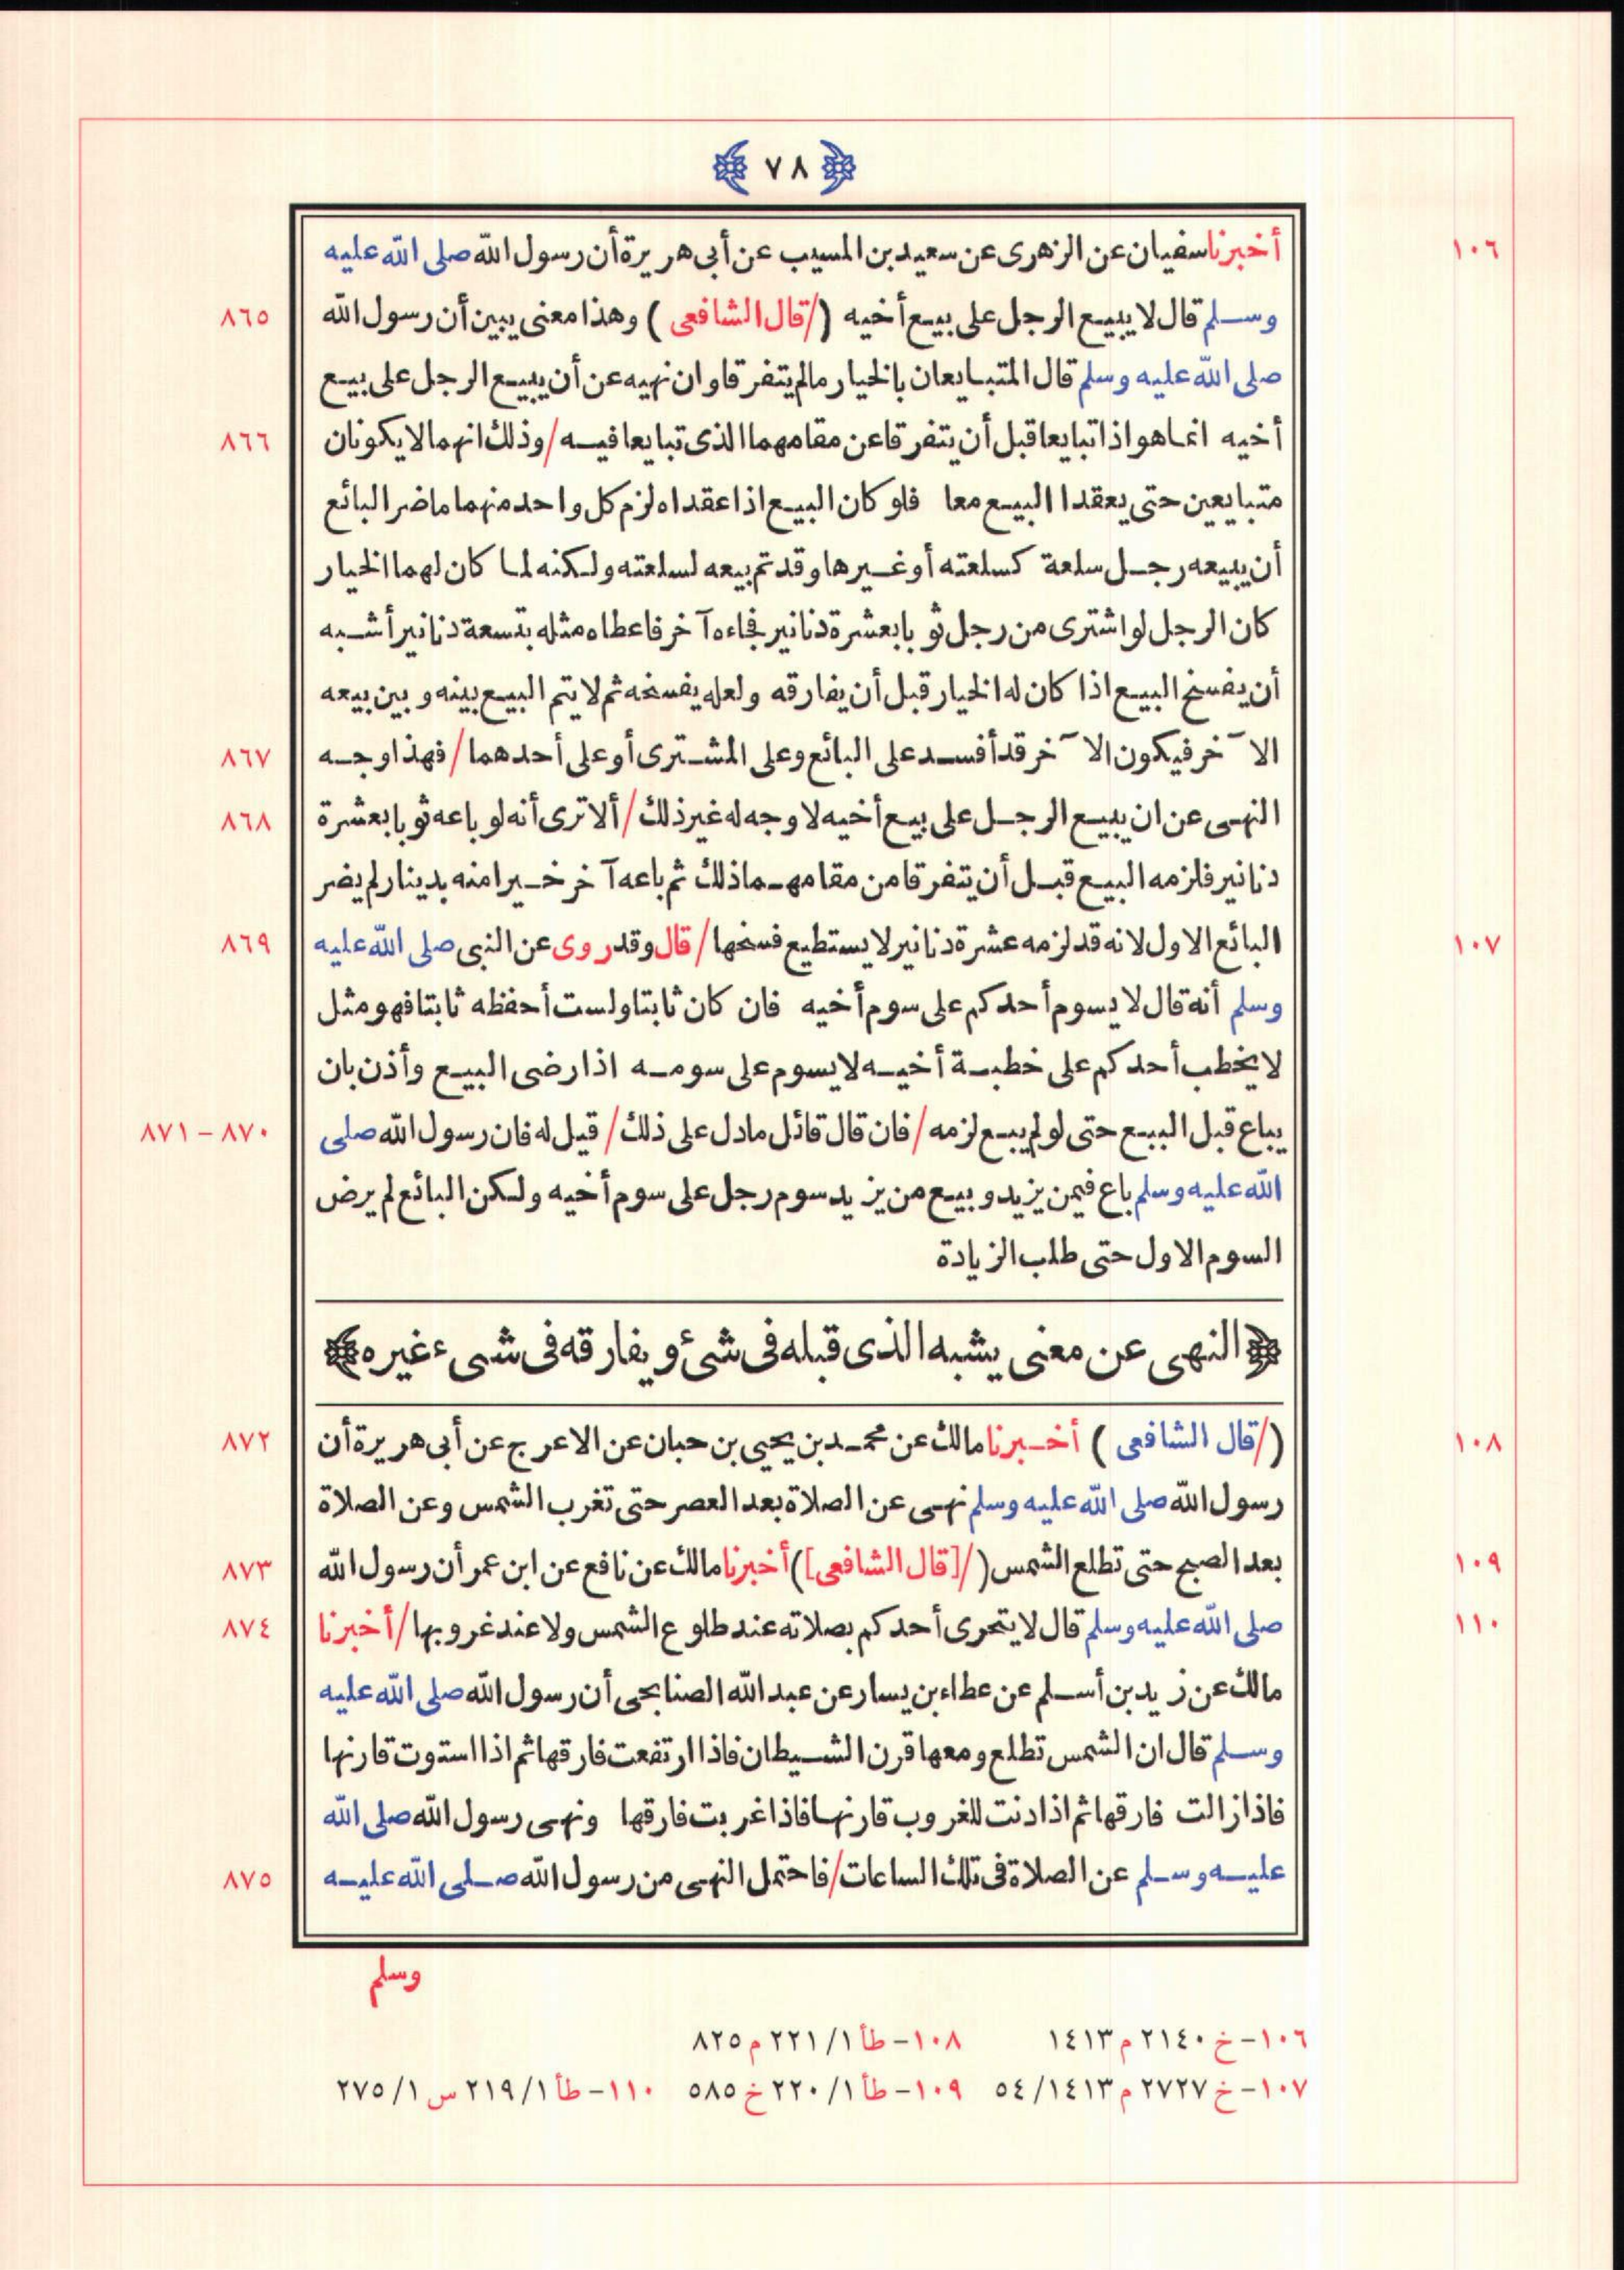 ٧٨
١٠٦ أخبرنا سفيان عن الزهرى عن سعيد بن المسيب عن أبى هريرة أن رسول الله صلى الله عليه
وسلم قال لا يبيع الرجل على بيع أخيه (/قال الشافعى) وهذا معنى يبين أن رسول الله ٨٦٥
صلى الله عليه وسلم قال المتبايعان بالخيار مالم يتفرقا وان نهيه عن أن يبيع الرجل على بيع
أخيه انما هو اذا تبايعا قبل أن يتفرقا عن مقامهما الذى تبايعا فيه/وذلك انهما لا يكونان ٨٦٦
متبايعين حتى يعقدا البيع معا فلو كان البيع اذا عقداه لزم كل واحد منهما ماضر البائع
أن يبيعه رجل سلعة كسلعته أو غيرها وقد تم بيعه لسلعته ولكنه لما كان لهما الخيار
كان الرجل لو اشترى من رجل ثوبا بعشرة دنانير فجاءه آخر فاعطاه مثله بتسعة دنانير أشبه
أن يفسخ البيع اذا كان له الخيار قبل أن يفارقه ولعله يفسخه ثم لا يتم البيع بينه وبين بيعه
الآخر فيكون الآخر قد أفسد على البائع وعلى المشترى أو على أحدهما/فهذا وجه ٨٦٧
النهى عن ان يبيع الرجل على بيع أخيه لا وجه له غير ذلك/ألا ترى أنه لو باعه ثوبا بعشرة ٨٦٨
دنانير فلزمه البيع قبل أن يتفرقا من مقامهما ذلك ثم باعه آخر خيرا منه بدينار لم يضر
١٠٧ البائع الاول لانه قد لزمه عشرة دنانير لا يستطيع فسخها/قال وقد روى عن النبى صلى الله عليه ٨٦٩
وسلم أنه قال لا يسوم أحدكم على سوم أخيه فان كان ثابتا ولست أحفظه ثابتا فهو مثل
لا يخطب أحدكم على خطبة أخيه لا يسوم على سومه اذا رضى البيع وأذن بان
يباع قبل البيع حتى لو لم يبع لزمه/فان قال قائل مادل على ذلك/قيل له فان رسول الله صلى ٨٧٠ – ٨٧١
الله عليه وسلم باع فيمن يزيد وبيع من يزيد سوم رجل على سوم أخيه ولكن البائع لم يرض
السوم الاول حتى طلب الزيادة
النهى عن معنى يشبه الذى قبله فى شئ ويفارقه فى شىء غيره
١٠٨ (/قال الشافعى) أخبرنا مالك عن محمد بن يحيى بن حبان عن الاعرج عن أبى هريرة أن ٨٧٢
رسول الله صلى الله عليه وسلم نهى عن الصلاة بعد العصر حتى تغرب الشمس وعن الصلاة
١٠٩ بعد الصبح حتى تطلع الشمس (/[قال الشافعى]) أخبرنا مالك عن نافع عن ابن عمر أن رسول الله ٨٧٣
١١٠ صلى الله عليه وسلم قال لا يتحرى أحدكم بصلاته عند طلوع الشمس ولا عند غروبها/أخبرنا ٨٧٤
مالك عن زيد بن أسلم عن عطاء بن يسار عن عبد الله الصنابحى أن رسول الله صلى الله عليه
وسلم قال ان الشمس تطلع ومعها قرن الشيطان فاذا ارتفعت فارقها ثم اذا استوت قارنها
فاذا زالت فارقها ثم اذا دنت للغروب قارنها فاذا غربت فارقها ونهى رسول الله صلى الله
عليه وسلم عن الصلاة فى تلك الساعات/فاحتمل النهى من رسول الله صلى الله عليه ٨٧٥
وسلم
١٠٦– خ ٢١٤٠ م ١٤١٣ ١٠٨– طأ ١/٢٢١ م ٨٢٥
١٠٧– خ ٢٧٢٧ م ٥٤/١٤١٣ ١٠٩– طأ ١/٢٢٠ خ ٥٨٥ ١١٠– طأ ١/٢١٩ س ١/٢٧٥